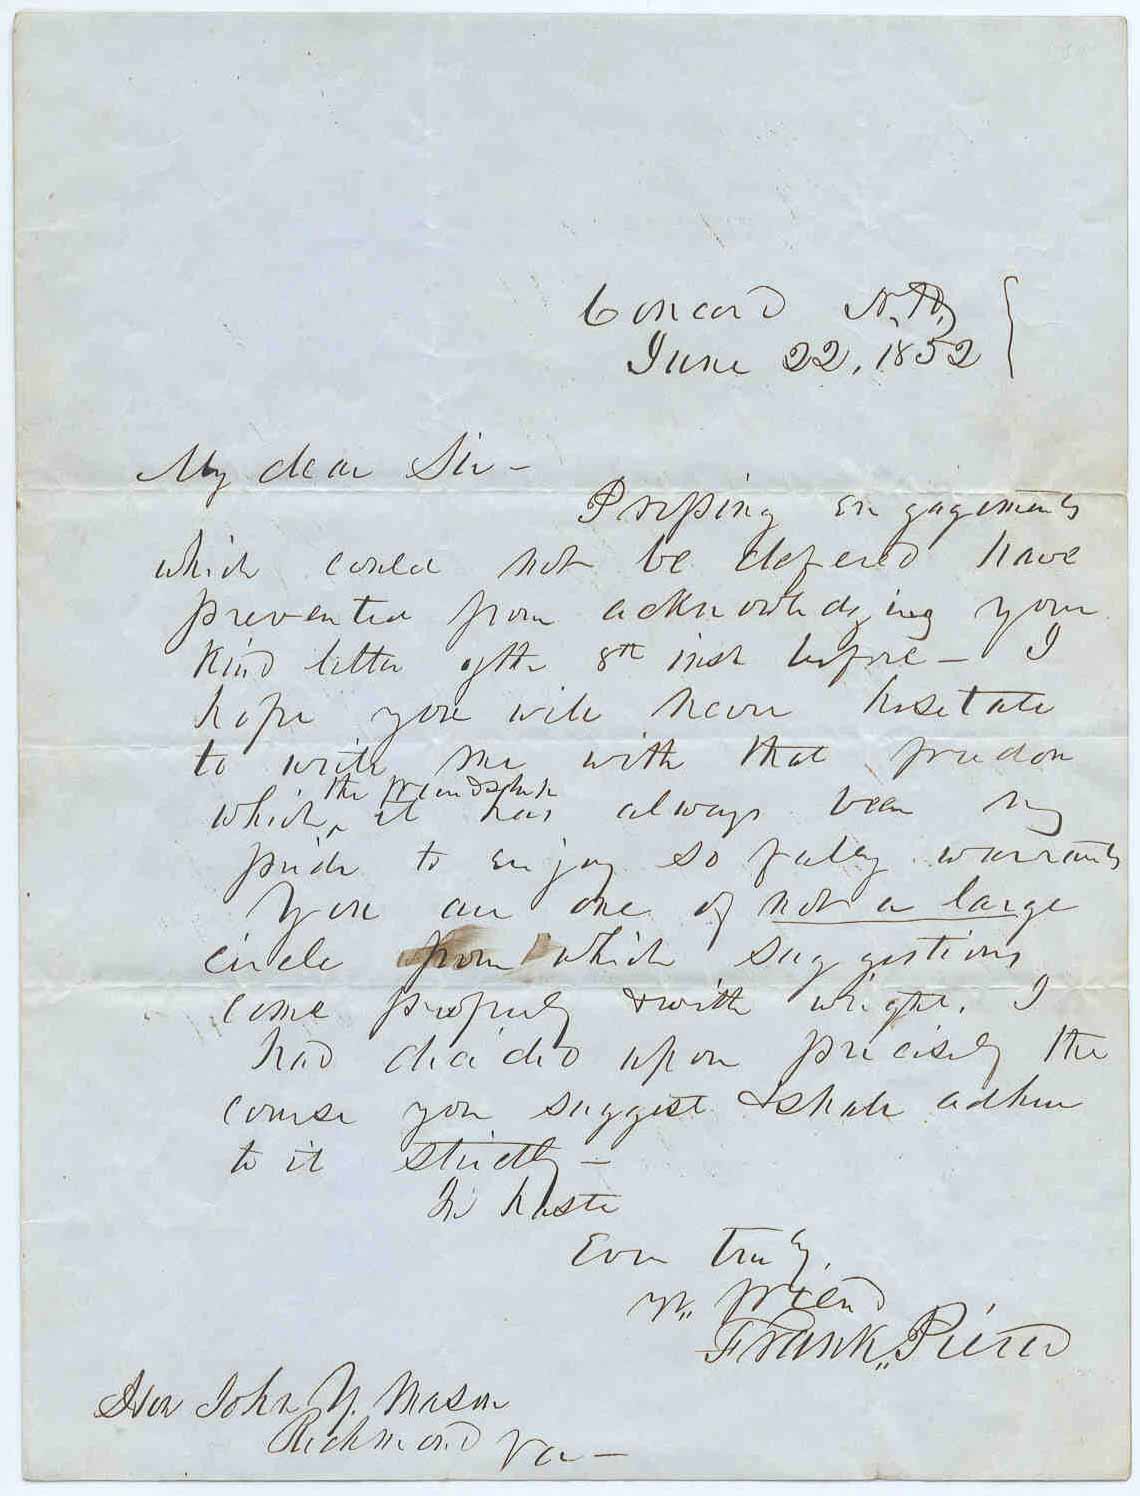 Concord N.H.
June 22, 1852
My dear Sir –
Pressing engagements
which could not be defered have
prevented from acknowledging your
kind letter of the 8th inst before – I
hope you will never hesitate
to write me with that freedom
which the friendship it has always been my
pride to enjoy so fully warrants
You are one of not a large
circle from which suggestions
come properly & with weight. I
had decided upon precisely the
course you suggest & shall adhere
to it strictly –
In haste
Ever truly,
yr. friend
Frank. Pierce
Hon John Y. Mason
Richmond Va –